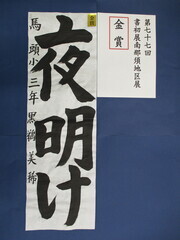 第七十七回
書初展南那須地区展
金賞
夜明け
馬頭小三年
美稀